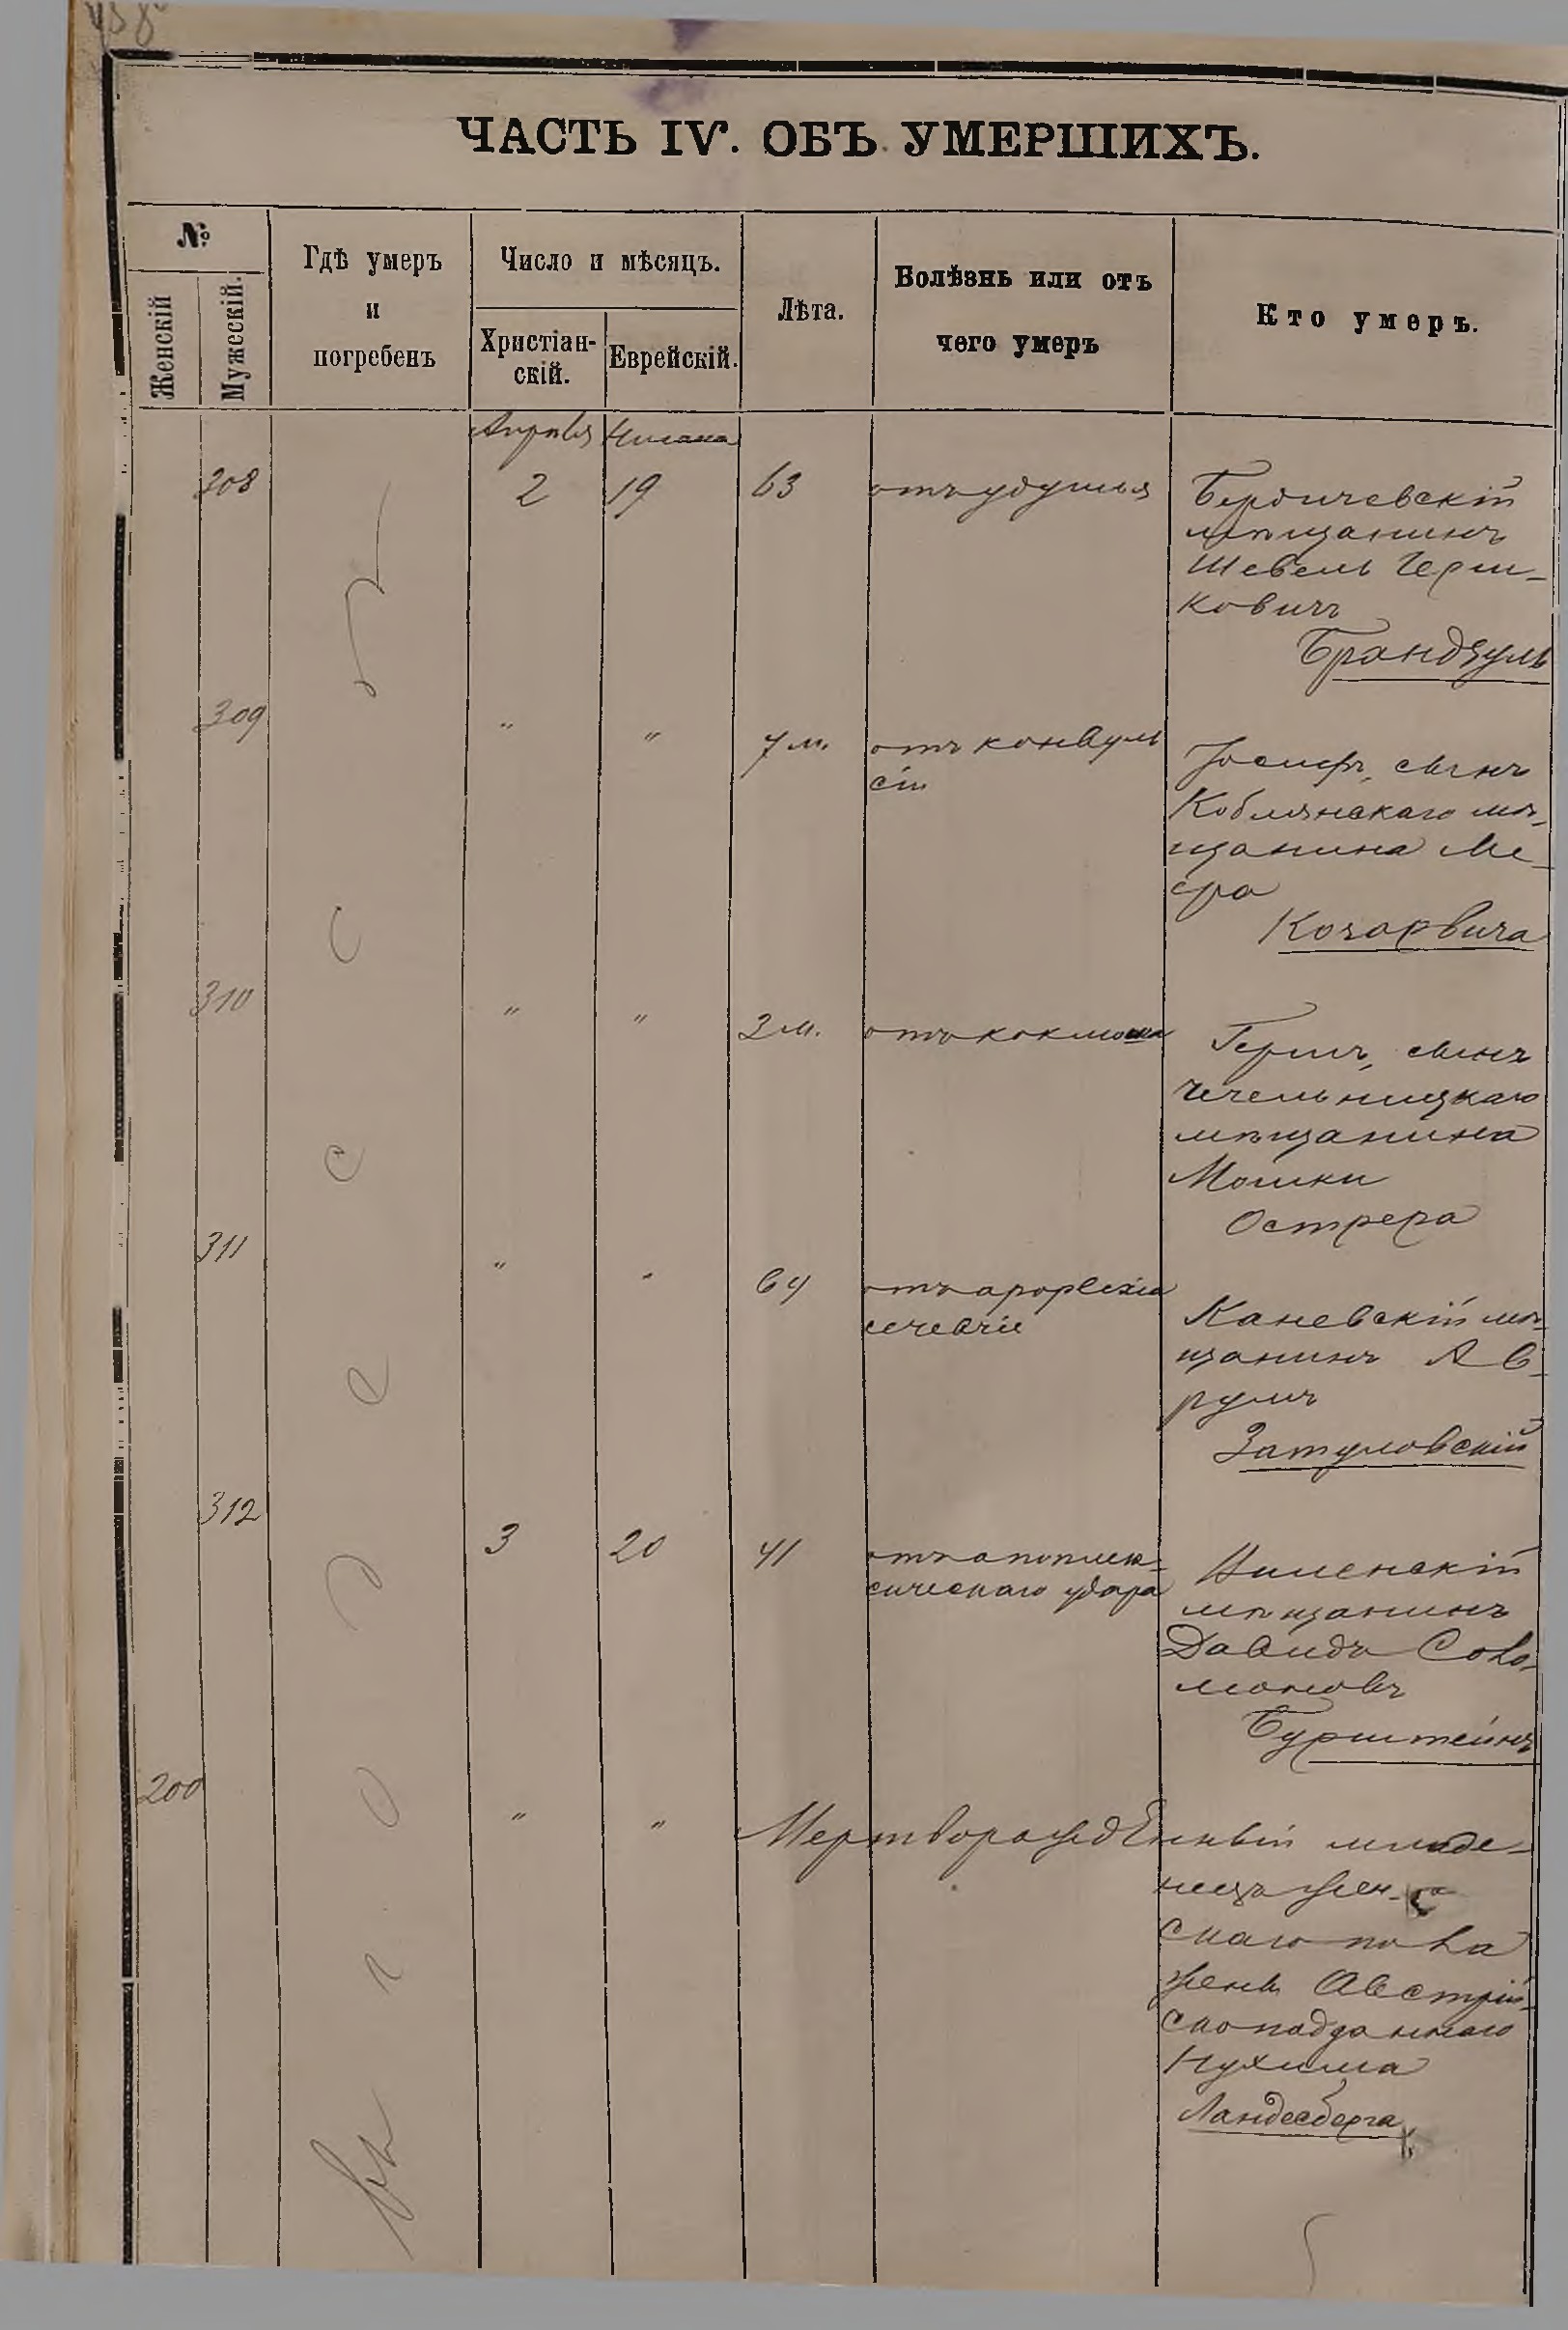 ЧАСТЬ IV. ОБЪ УМЕРШИХЪ.
№
Женскій
Мужескій.
Гдѣ умеръ
и
погребенъ
Число и мѣсяцъ.
Христіан-
скій.
Еврейскій.
Лѣта.
Болѣзнь или отъ
чего умеръ
Кто умеръ.
Апрѣля Нисана
308 2 19 63 отъ удушья Бердичевскій
мѣщанинъ
Шевель Герш-
ковичъ
Брандзуль
309 " " 7 м. отъ конвуль
сіи
Іосифъ, сынъ
Коблянскаго мѣ-
щанина Ме-
ера
310 " " 3 м. отъ коклюша Гершъ, сынъ
Чечельницкаго
мѣщанина
Мошки
Острера
311 " " 64 Каневскій мѣ-
щанинъ Ав-
румъ
Затуловскій
312 3 20 41 отъ апоплек-
сическаго удара
мѣщанинъ
Давидъ Соло-
моновъ
Бурштейнъ
200 " " Мертворожденный младе-
нецъ жен-
скаго пола
жены Австрій-
скоподданнаго
Нухима
Ландесберга